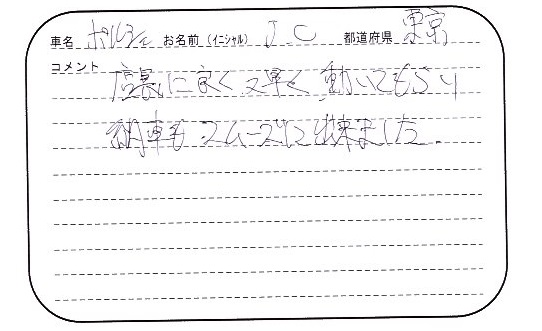 車名 ポルシェ お名前 (イニシャル) I.C 都道府県 東京
コメント
店長に良く又早く動いてもらい
納車もスムーズに出来ました.